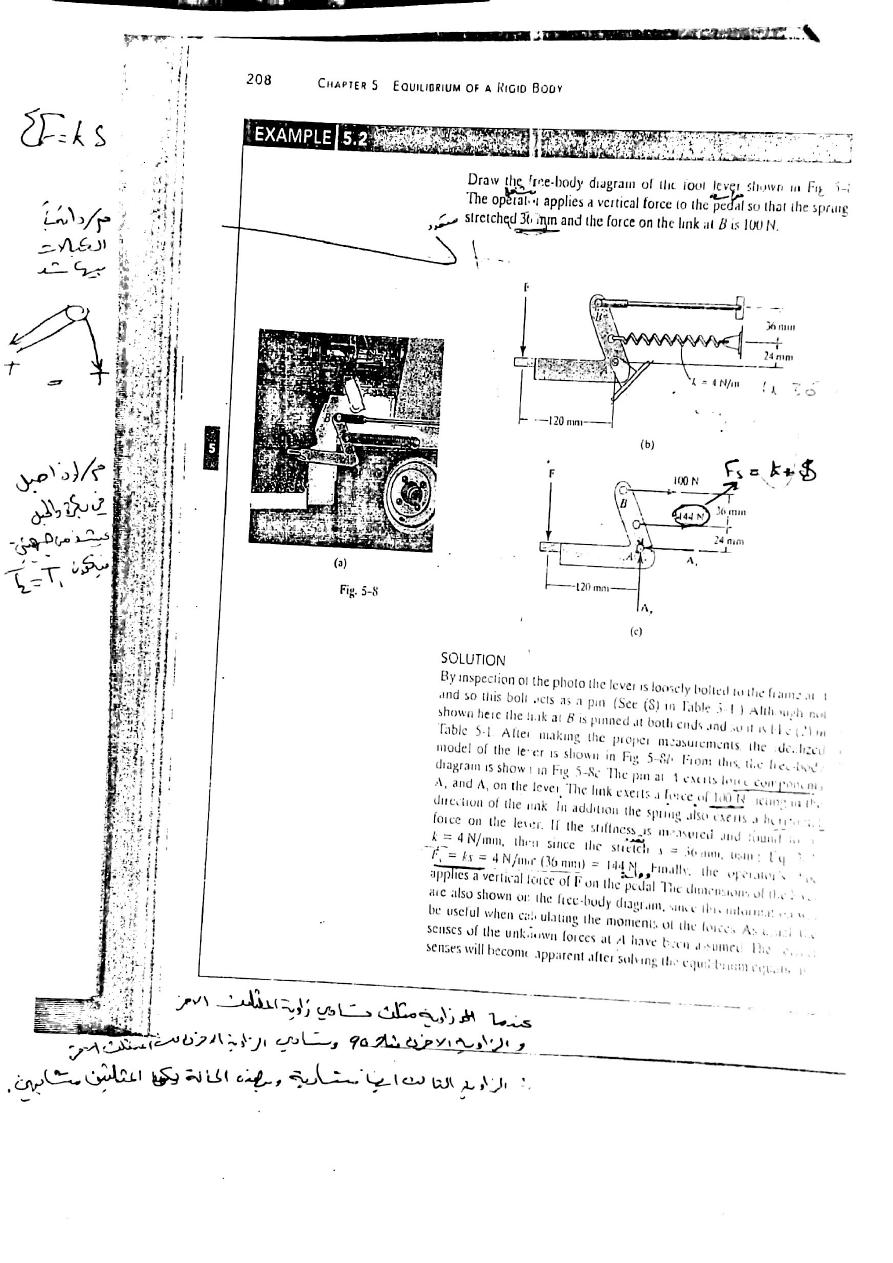 208 CHAPTER 5 EQUILIBRIUM OF A RIGID BODY
EXAMPLE 5.2
Draw the free-body diagram of the foot lever shown in Fig.
The operator applies a vertical force to the pedal so that the spring
stretched 36 mm and the force on the link at B is 100 N.
F = k s
م/ دائماً
F
B
36 mm
24 mm
k = 4 N/m
120 mm
(b)
B
(a)
Fig. 5-8
5
F
100 N
Fs = k * S
B
144 N
36 mm
24 mm
A
A
120 mm
A
(c)
T₂ = T₁
SOLUTION
By inspection of the photo the lever is loosely bolted to the frame at
and so this bolt acts as a pin (See (8) in Table 5-1.) Although not
shown here the link at B is pinned at both ends and so it is like (2) in
Table 5-1 After making the proper measurements the idealized
model of the lever is shown in Fig 5-8b From this, the free-body
diagram is shown in Fig 5-8c The pin at A exerts force components
A, and A, on the lever The link exerts a force of 100 N acting in the
direction of the link In addition the spring also exerts a horizontal
force on the lever. If the stiffness is measured and found to
k = 4 N/mm, then since the stretch s = 36 mm, using Eq
F = ks = 4 N/mm (36 mm) = 144 N Finally, the operator's
applies a vertical force of F on the pedal The dimensions of the
are also shown on the free-body diagram, since this information
be useful when calculating the moments of the forces. As
senses of the unknown forces at A have been assumed The
senses will become apparent after solving the equilibrium
عندما زاوية مثلث تساوي زاوية المثلث الاخر
و الزاوية الاخرى مثلا 90 وتساوي الزاوية الاخرى
∴ الزاوية الثالثة ايضا متساوية وبهذه الحالة المثلثين متشابهين.